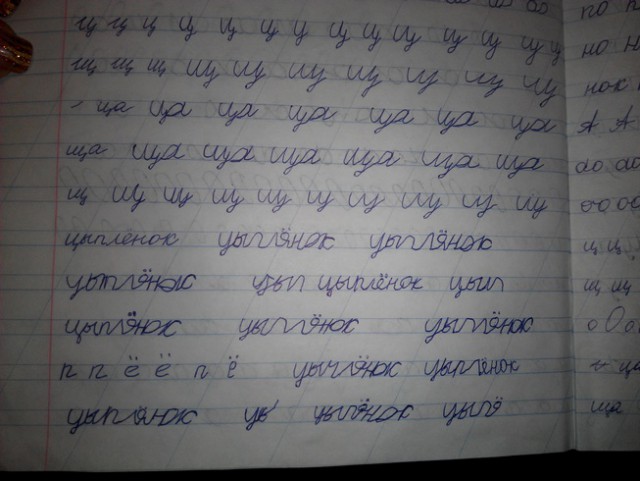 ц ц ц ц ц ц ц ц ц ц ц ц ц
щ щ щ щ щ щ щ щ щ щ щ
ща ца ца ца ца ца ца
ща ща ща ща ща ща ща
щ щ щ щ щ щ щ щ щ щ
цыпленок цыплёнок цыплёнок
цыплёнок цып цыплёнок цып
цыплёнок цыплёнок цыплёнок
п п ё ё п ё цыплёнок цыплёнок
цыплёнок цы цыплёнок цыплё
но н
А А
ао ао
щ щ
ща